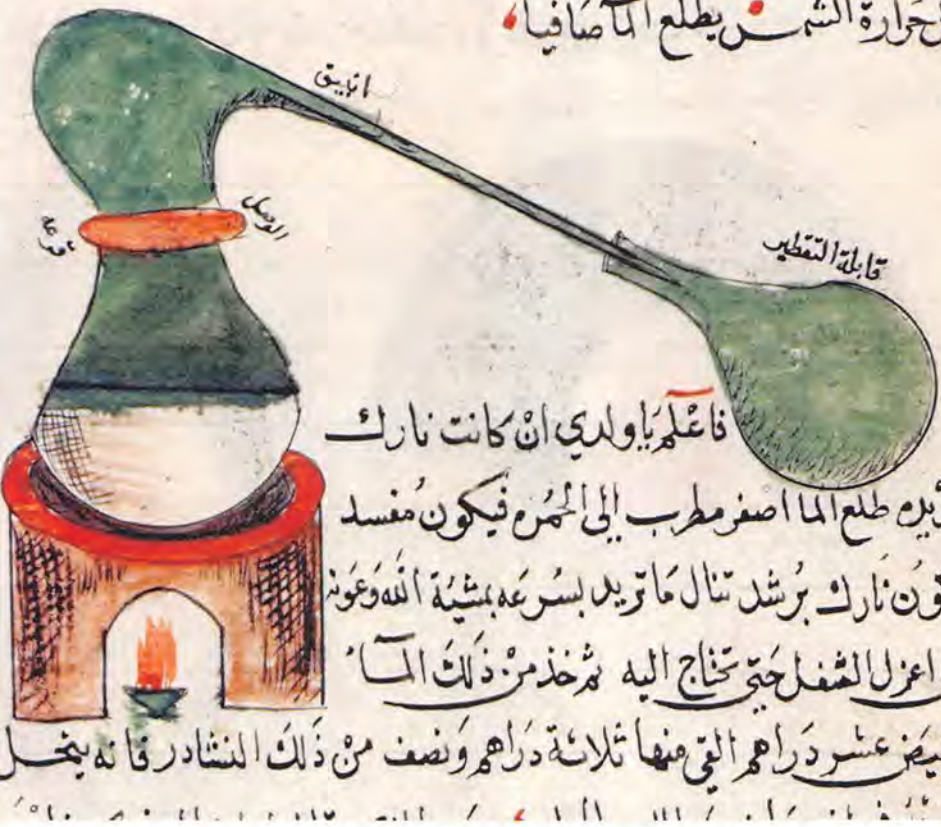 حرارة الشمس يطلع الماصافيا
انبيق
الوصل
قرعه
قابلة التقطير
فاعْلم يَاولدي ان كانت نارك
طلع الما اصفر مطرب الى الحمره فيكون مُفسد
نارك برشد تنال مَاتريد بسُرعَه بمشيئة الله وَعَونه
اعزل الثفل حَتى تحتاج اليه ثم خذ من ذلك المآء
عشر دَراهم القي منها ثلاثة دَراهم وَنصف من ذَلكَ النشادر فانه ينحل